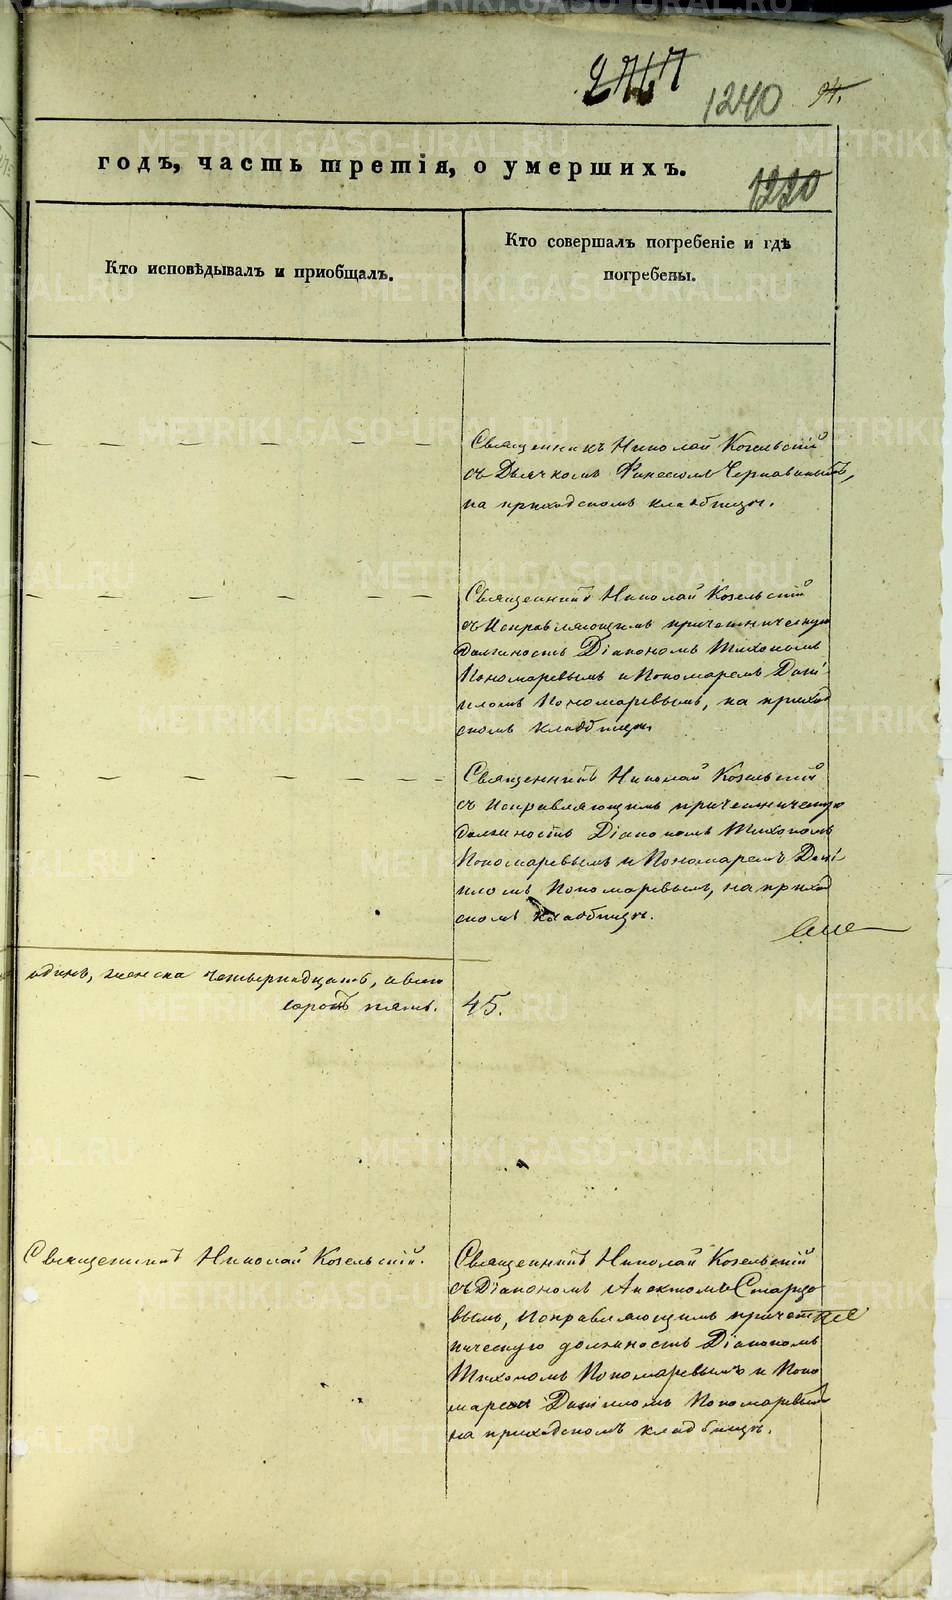 1240 94.
годъ, часть третія, о умершихъ.
1220
Кто исповѣдывалъ и приобщалъ.
Кто совершалъ погребеніе и гдѣ
погребены.
Священникъ Николай Козельскій
съ Дьячкомъ Финеесомъ Чернавинымъ,
на приходскомъ кладбищѣ.
Священникъ Николай Козельскій
съ Исправляющимъ причетническую
должность Діакономъ Тихономъ
Пономаревымъ и Пономаремъ Дані-
иломъ Пономаревымъ, на приход
скомъ кладбищѣ.
Священникъ Николай Козельскій
съ Исправляющимъ причетническую
должность Діакономъ Тихономъ
Пономаревымъ и Пономаремъ Дані-
иломъ Пономаревымъ, на приход
скомъ кладбищѣ.
одинъ, женска четырнадцать, а всего
сорокъ пять. 45.
Священникъ Николай Козельскій.
Священникъ Николай Козельскій
съ Діакономъ Старцо
вымъ, Исправляющимъ причет
ническую должность Діакономъ
Тихономъ Пономаревымъ и Поно
маремъ Даніиломъ Пономаревымъ
на приходскомъ кладбищѣ.
METRIKI.GASO-URAL.RU